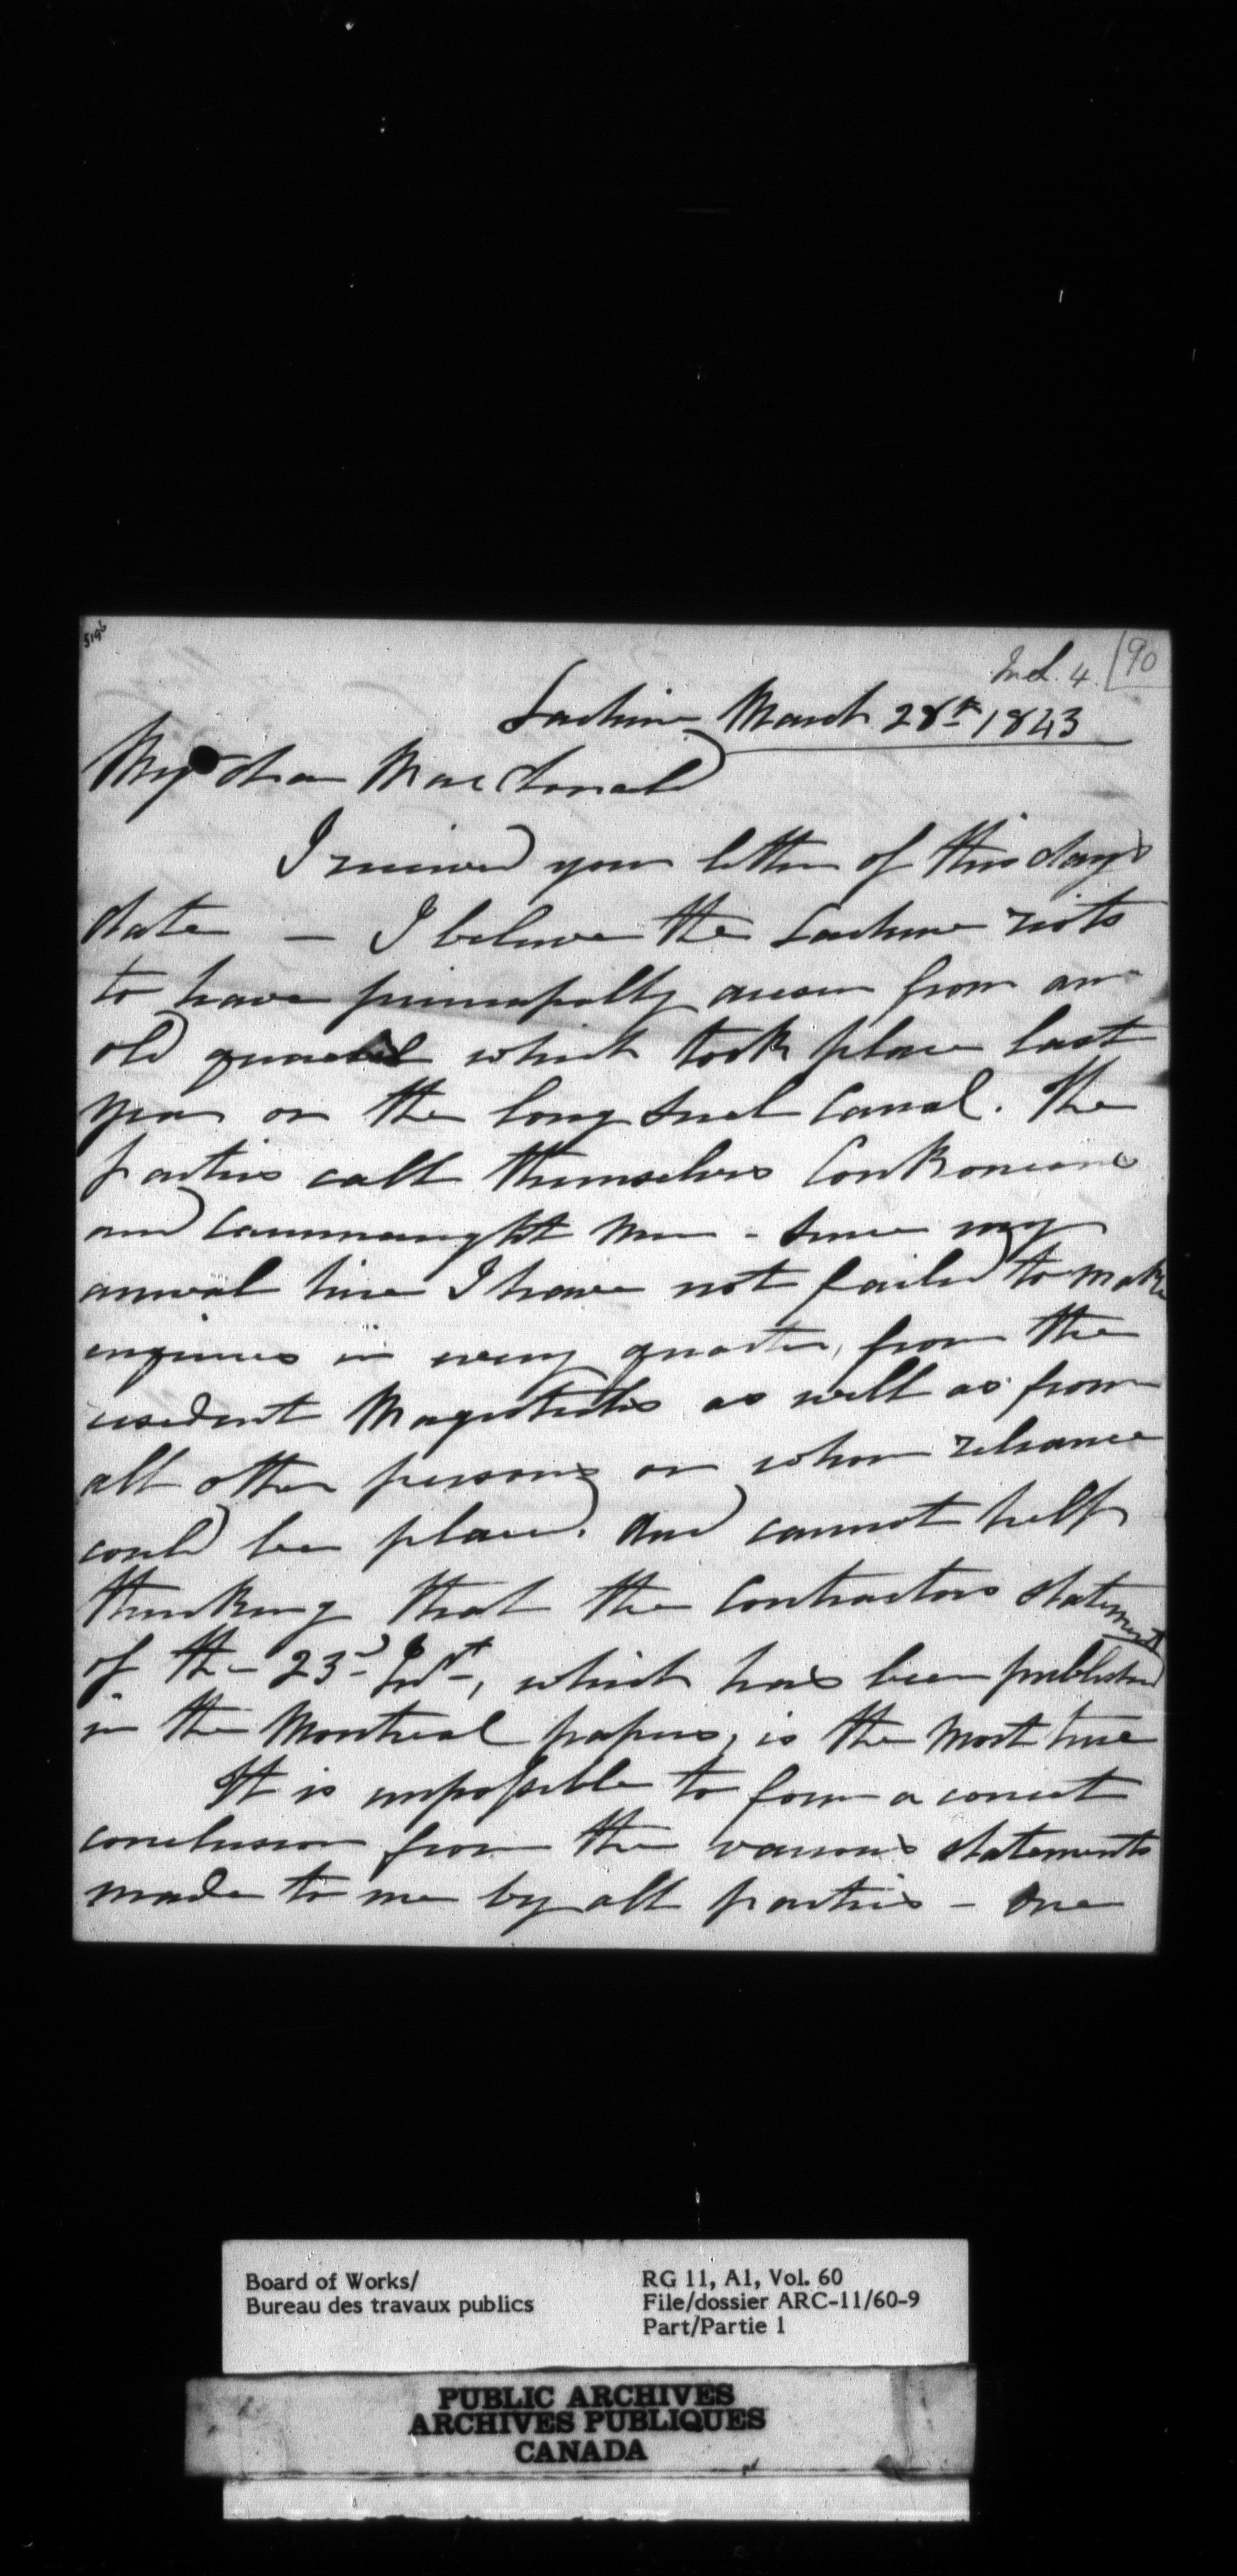 5196
Incl. 4. 90
Lachine March 28th 1843
My dear Macdonald
I received your letter of this day's
date — I believe the Lachine riots
to have principally arisen from an
old quarrel which took place last
year on the long Suel Canal. The
parties call themselves Corkonians
and Cannaught men - Since my
arrival here I have not failed to make
enquiries in every quarter, from the
resident Magistrates as well as from
all other persons on whom reliance
could be placed. And cannot help
thinking that the Contractors statement
of the 23d Inst, which has been published
in the Montreal papers, is the most true
It is impossible to form a correct
conclusion from the various statements
made to me by all parties - One
Board of Works/
Bureau des travaux publics
RG 11, A1, Vol. 60
File/dossier ARC-11/60-9
Part/Partie 1
PUBLIC ARCHIVES
ARCHIVES PUBLIQUES
CANADA